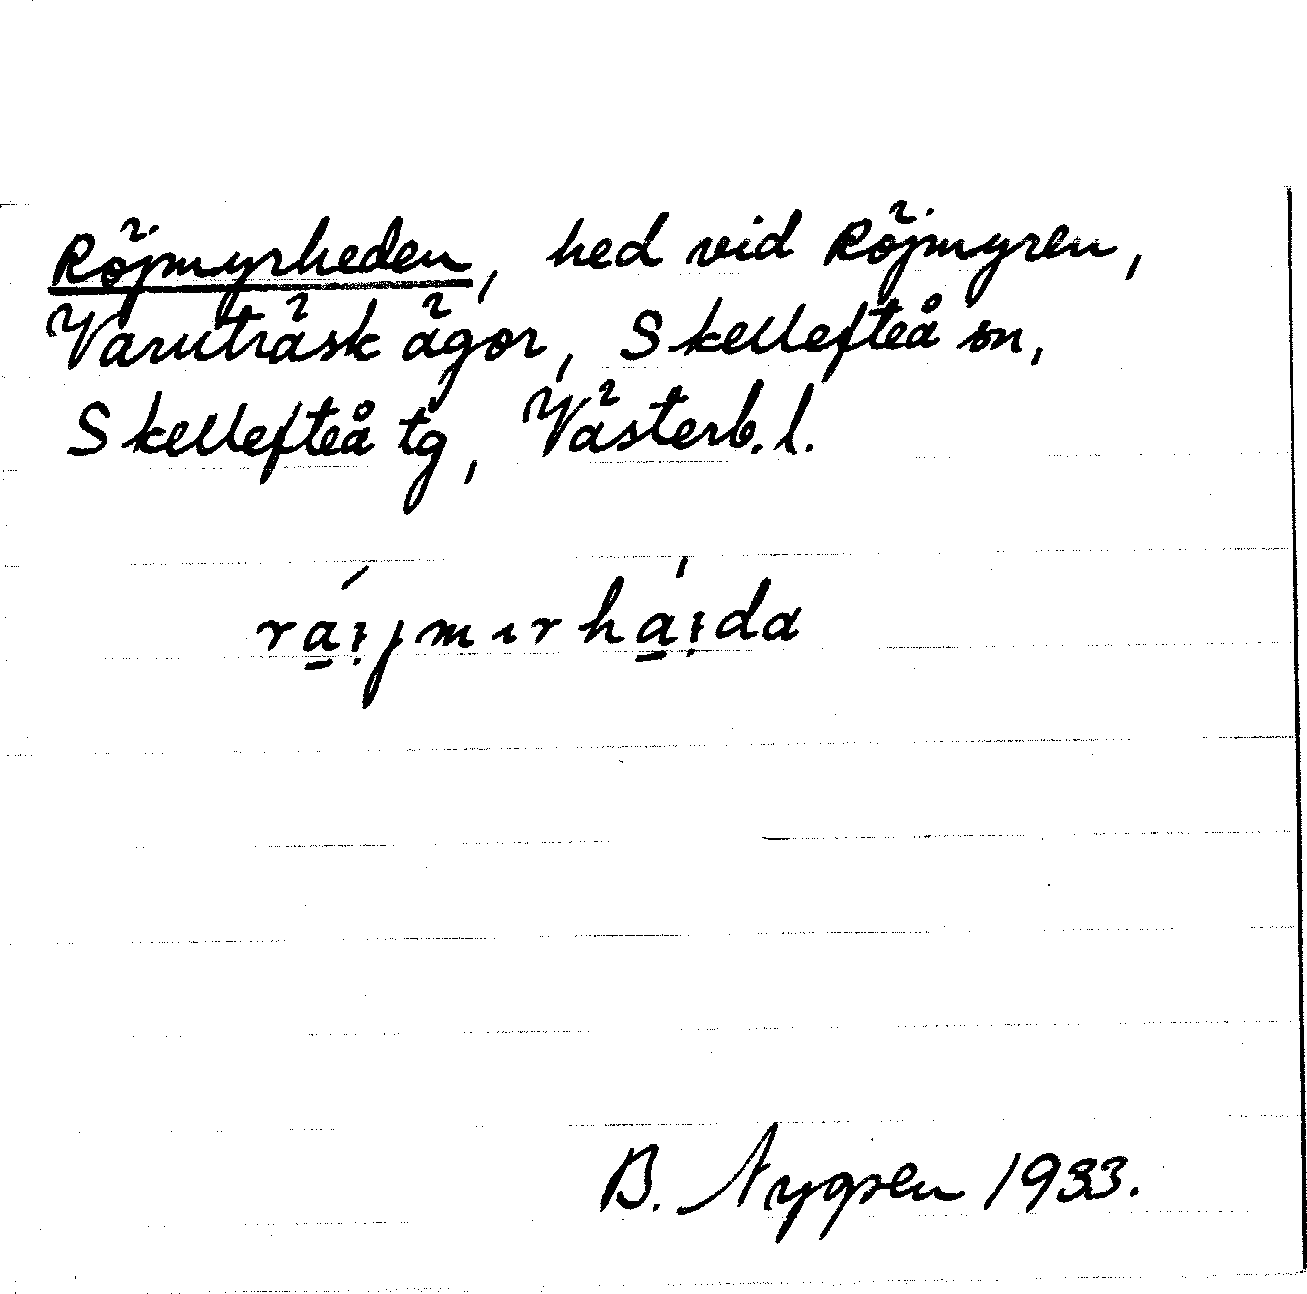 Röjmyrheden, hed vid Röjmyren,
Varuträsk ägor, Skellefteå sn,
Skellefteå tg, Västerb. l.
B. Nygren 1933.